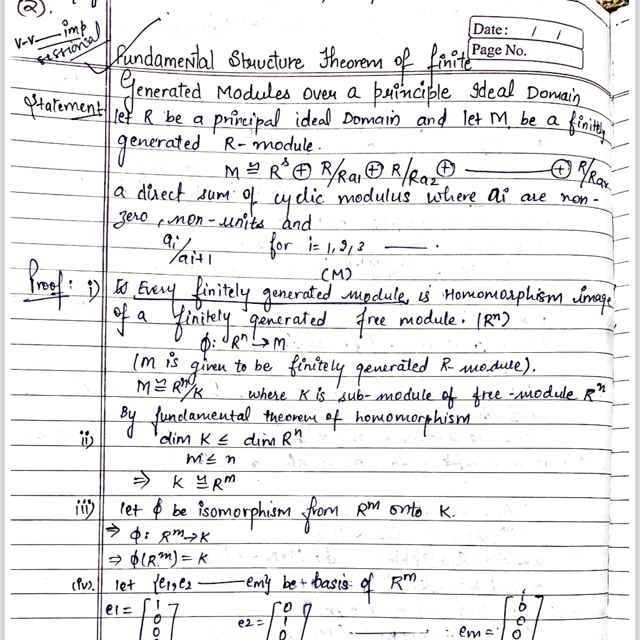 (2).
v-v imp
sessional
Date: / /
Page No.
Fundamental Structure Theorem of finite
Generated Modules over a principle Ideal Domain
Statement let R be a principal ideal Domain and let M be a finitely
generated R-module.
M ≅ R^s ⊕ R/Ra1 ⊕ R/Ra2 ⊕ ——— ⊕ R/Rar
a direct sum of cyclic modulus where ai are non-
zero, non-units and
ai/ai+1 for i=1,2,3 ——.
(M)
Proof: i) Every finitely generated module, is Homomorphism image
of a finitely generated free module. (R^n)
ϕ: R^n → M
(M is given to be finitely generated R-module).
M ≅ R^n/K where K is sub-module of free-module R^n
By fundamental theorem of homomorphism
ii) dim K ≤ dim R^n
m ≤ n
⇒ K ≅ R^m
iii) let ϕ be isomorphism from R^m onto K.
⇒ ϕ: R^m → K
⇒ ϕ(R^m) = K
(iv). let {e1, e2 —— em} be basis of R^m.
e1 = [1 0 0 e2 = [0 1 0 ——— em = [0 0